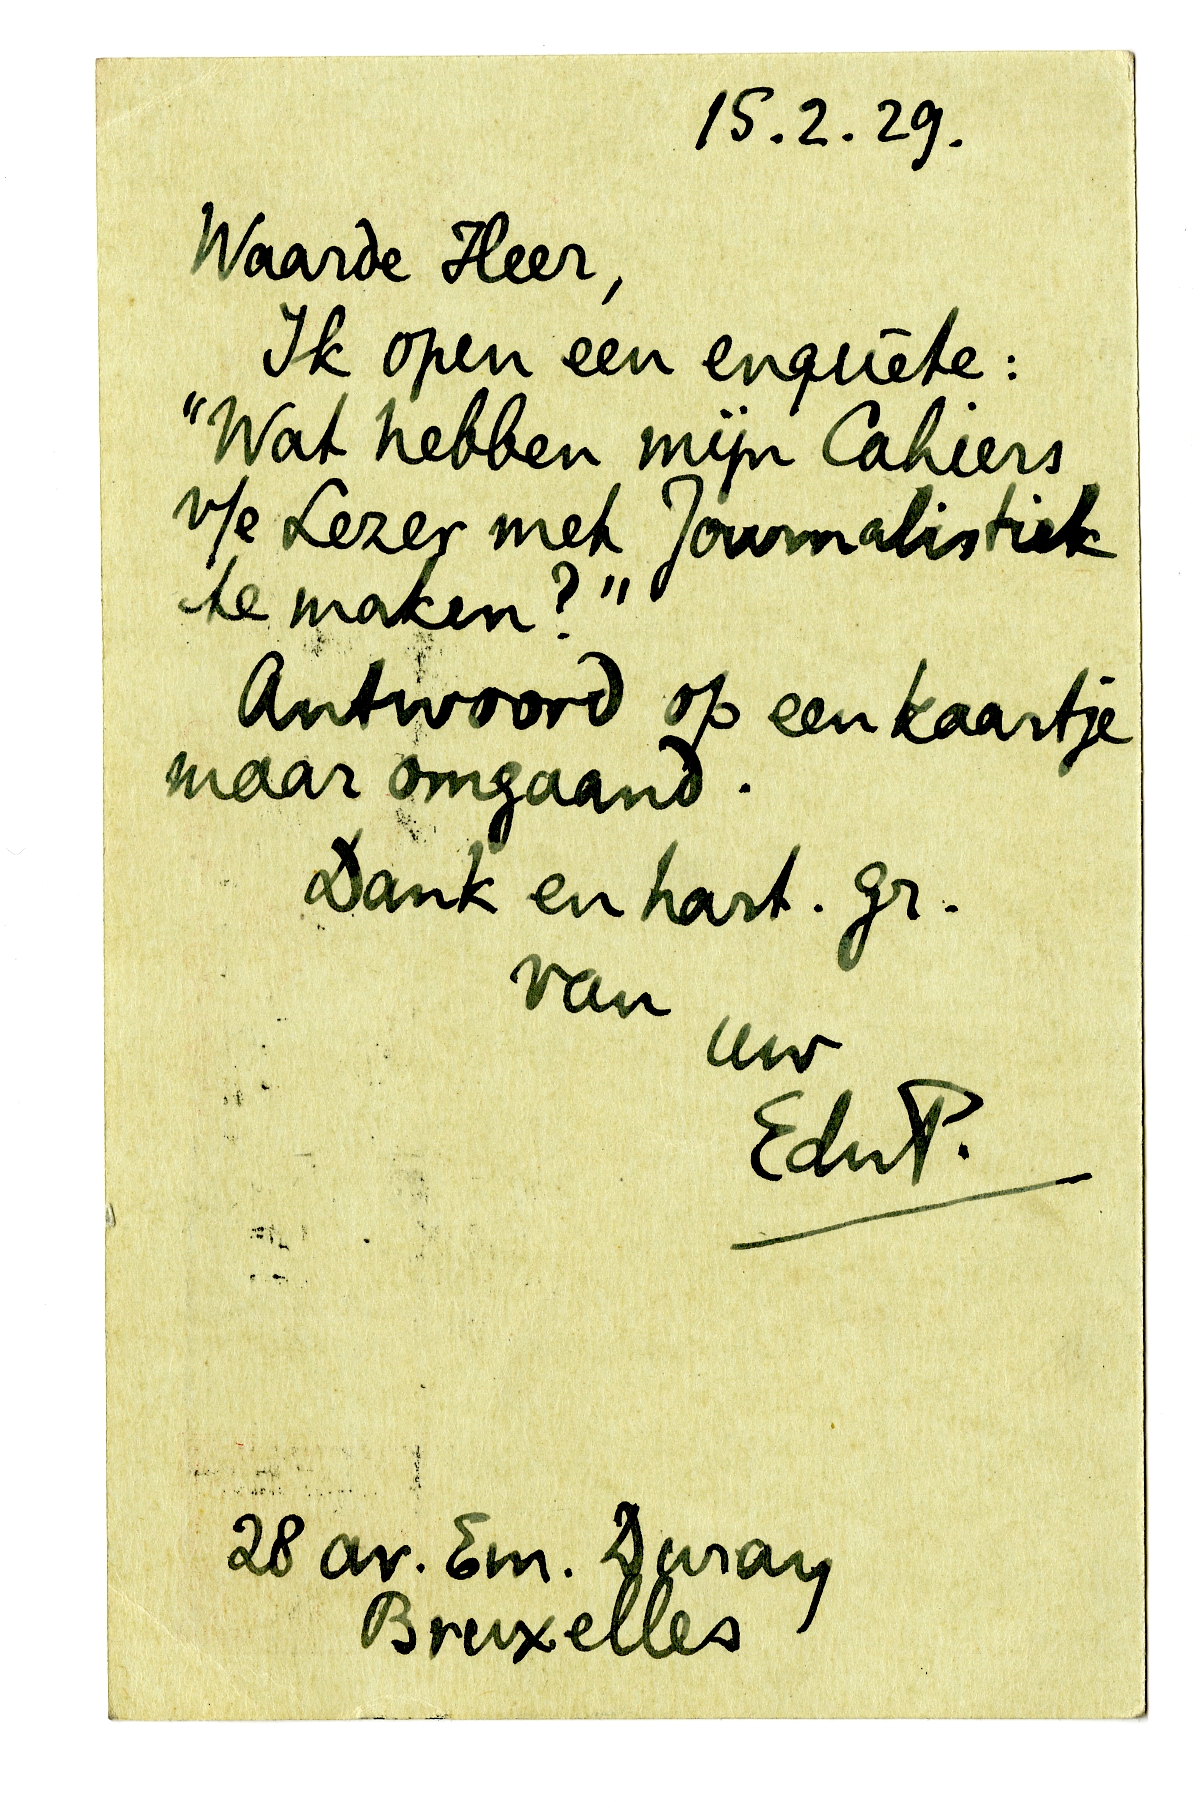 15.2.29.
Waarde Heer,
Ik open een enquête:
"Wat hebben mijn Cahiers
v/e Lezer met Journalistiek
te maken?"
Antwoord op een kaartje
maar omgaand.
Dank en hart. gr.
van
uw
EduP.
28 av. Em. Duray
Bruxelles